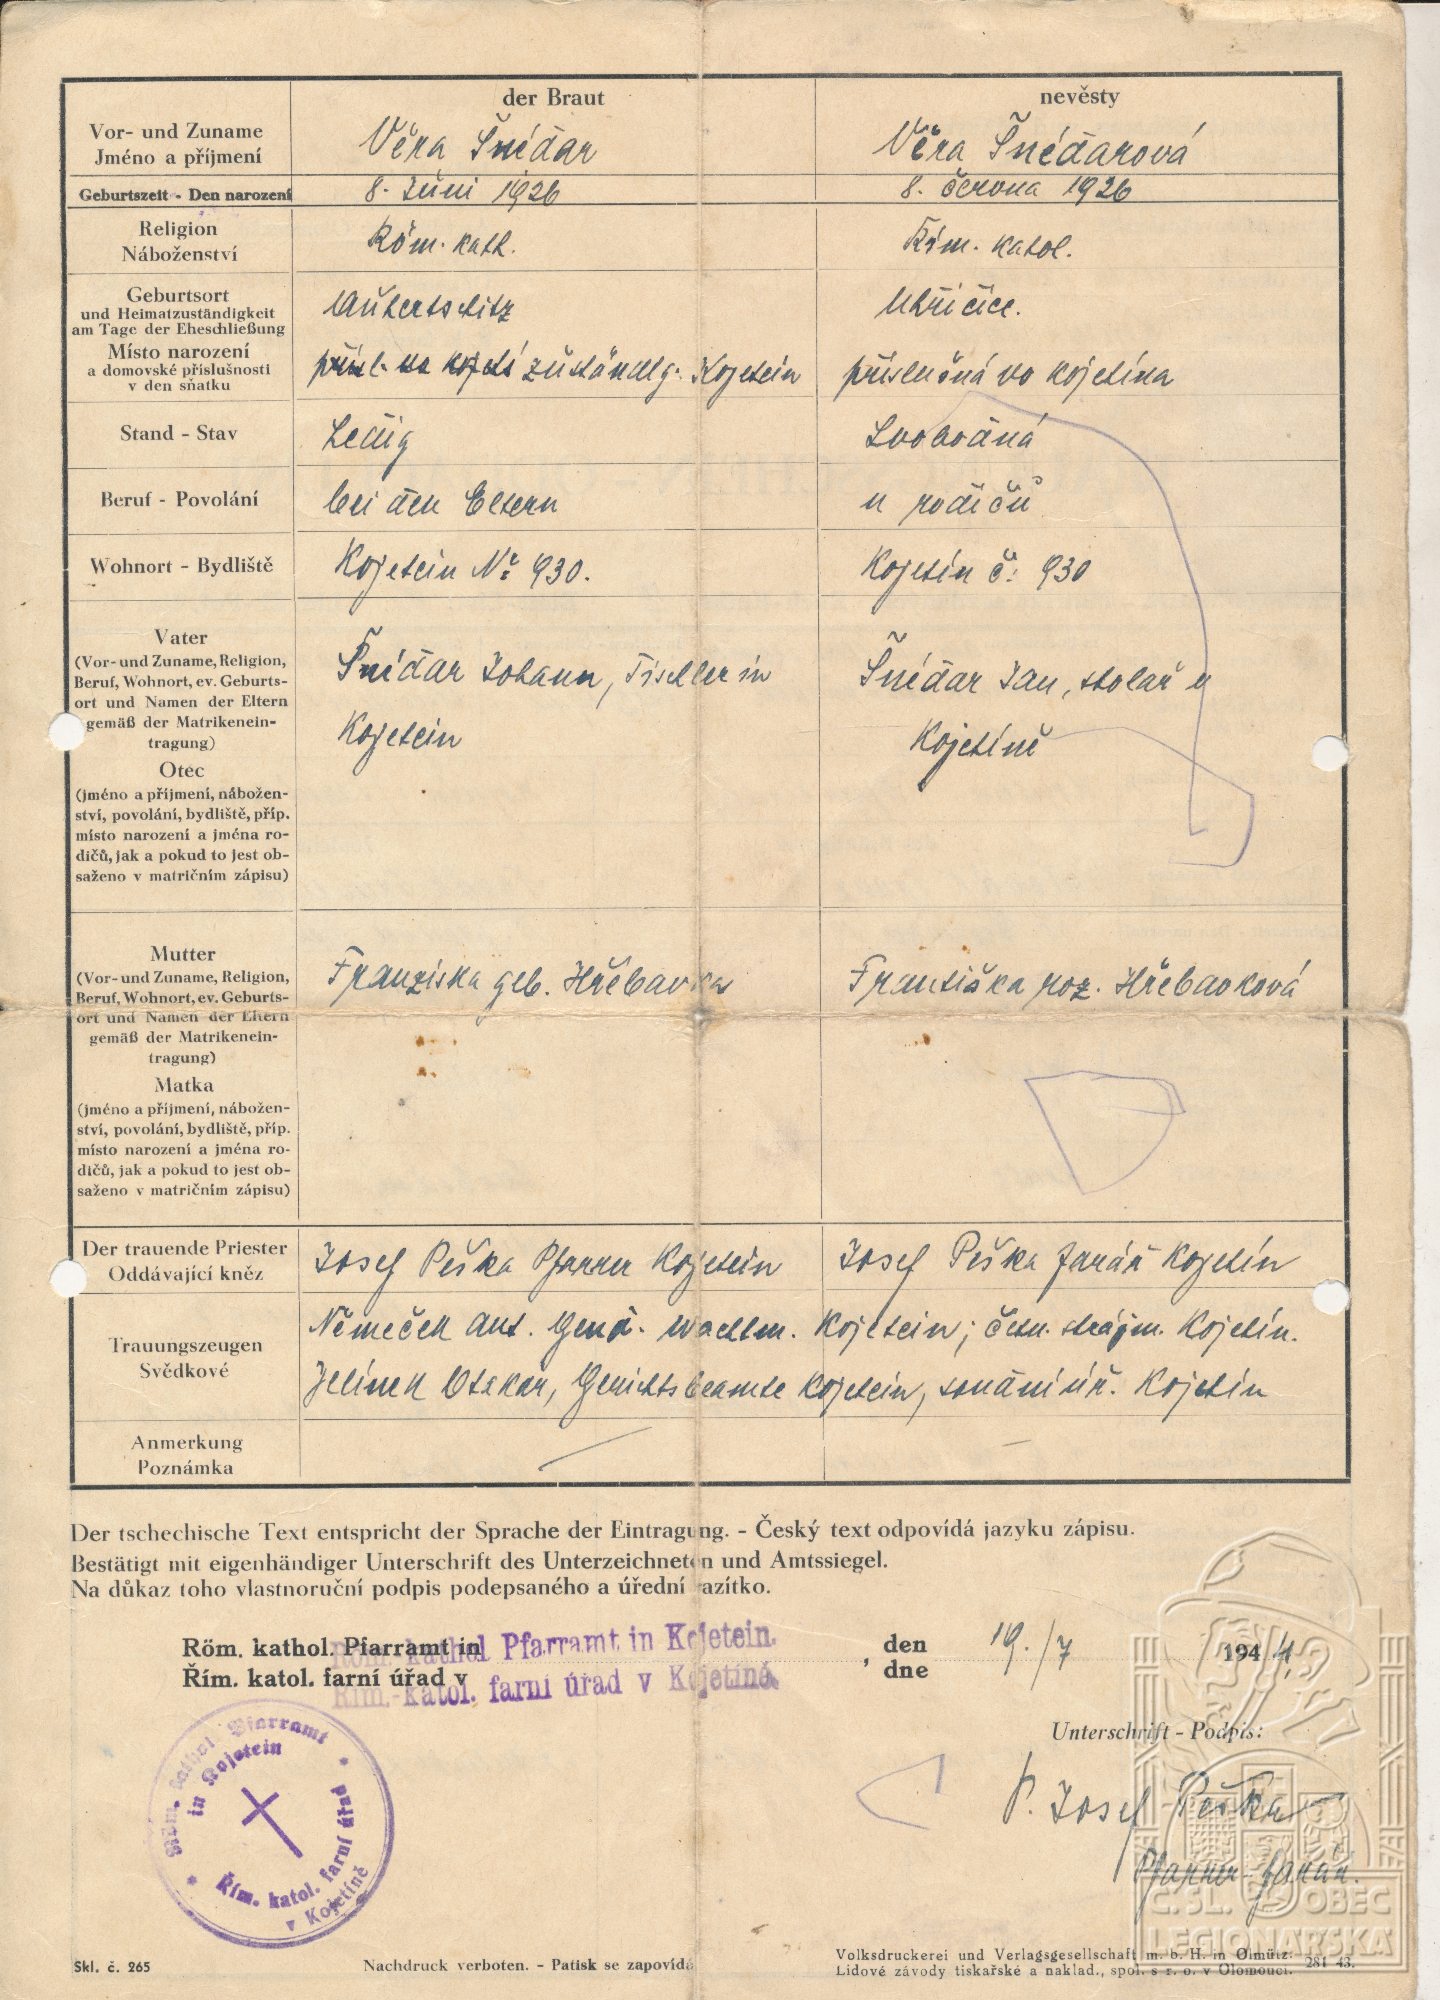 der Braut
nevěsty
Vor- und Zuname
Jméno a příjmení
Věra Šnédar
Věra Šnédarová
Geburtszeit - Den narození
8. Juni 1926
8. června 1926
Religion
Náboženství
Röm. kath.
Řím. katol.
Geburtsort
und Heimatzuständigkeit
am Tage der Eheschließung
Místo narození
a domovské příslušnosti
v den sňatku
Uhřičice.
zuständg. Kojetein
příslušná do Kojetína
Stand - Stav
Ledig
Svobodná
Beruf - Povolání
bei den Eltern
u rodičů
Wohnort - Bydliště
Kojetein Nr: 930.
Kojetín č: 930
Vater
(Vor- und Zuname, Religion,
Beruf, Wohnort, ev. Geburts-
ort und Namen der Eltern
gemäß der Matrikenein-
tragung)
Otec
(jméno a příjmení, nábožen-
ství, povolání, bydliště, příp.
místo narození a jména ro-
dičů, jak a pokud to jest ob-
saženo v matričním zápisu)
Šnédar Johann, Tischler in
Kojetein
Šnédar Jan, stolař v
Kojetíně
Mutter
(Vor- und Zuname, Religion,
Beruf, Wohnort, ev. Geburts-
ort und Namen der Eltern
gemäß der Matrikenein-
tragung)
Matka
(jméno a příjmení, nábožen-
ství, povolání, bydliště, příp.
místo narození a jména ro-
dičů, jak a pokud to jest ob-
saženo v matričním zápisu)
Franziska geb. Hřebavka
Františka roz. Hřebavková
Der trauende Priester
Oddávající kněz
Josef Peška Pfarrer Kojetein
Josef Peška farář Kojetín
Trauungszeugen
Svědkové
Němeček Ant. Gend. Wachtm. Kojetein; četn. strážm. Kojetín.
Jelínek Otakar, Gerichtsbeamte Kojetein, soudní úř. Kojetín
Anmerkung
Poznámka
Der tschechische Text entspricht der Sprache der Eintragung. - Český text odpovídá jazyku zápisu.
Bestätigt mit eigenhändiger Unterschrift des Unterzeichneten und Amtssiegel.
Na důkaz toho vlastnoruční podpis podepsaného a úřední razítko.
Röm. kathol. Pfarramt in
Röm.-kathol Pfarramt in Kojetein.
Řím. katol. farní úřad v
Řím.-katol. farní úřad v Kojetíně.
, den
dne
19./7
1944
Röm. kathol Pfarramt
in Kojetein
Řím. katol. farní úřad
v Kojetíně
Unterschrift - Podpis:
P. Josef Peška
Pfarrer-farář.
Č.SL. OBEC
LEGIONÁŘSKÁ
Skl. č. 265
Nachdruck verboten. - Patisk se zapovídá
Volksdruckerei und Verlagsgesellschaft m. b. H. in Olmütz.
Lidové závody tiskařské a naklad., spol. s r. o. v Olomouci.
281 43.